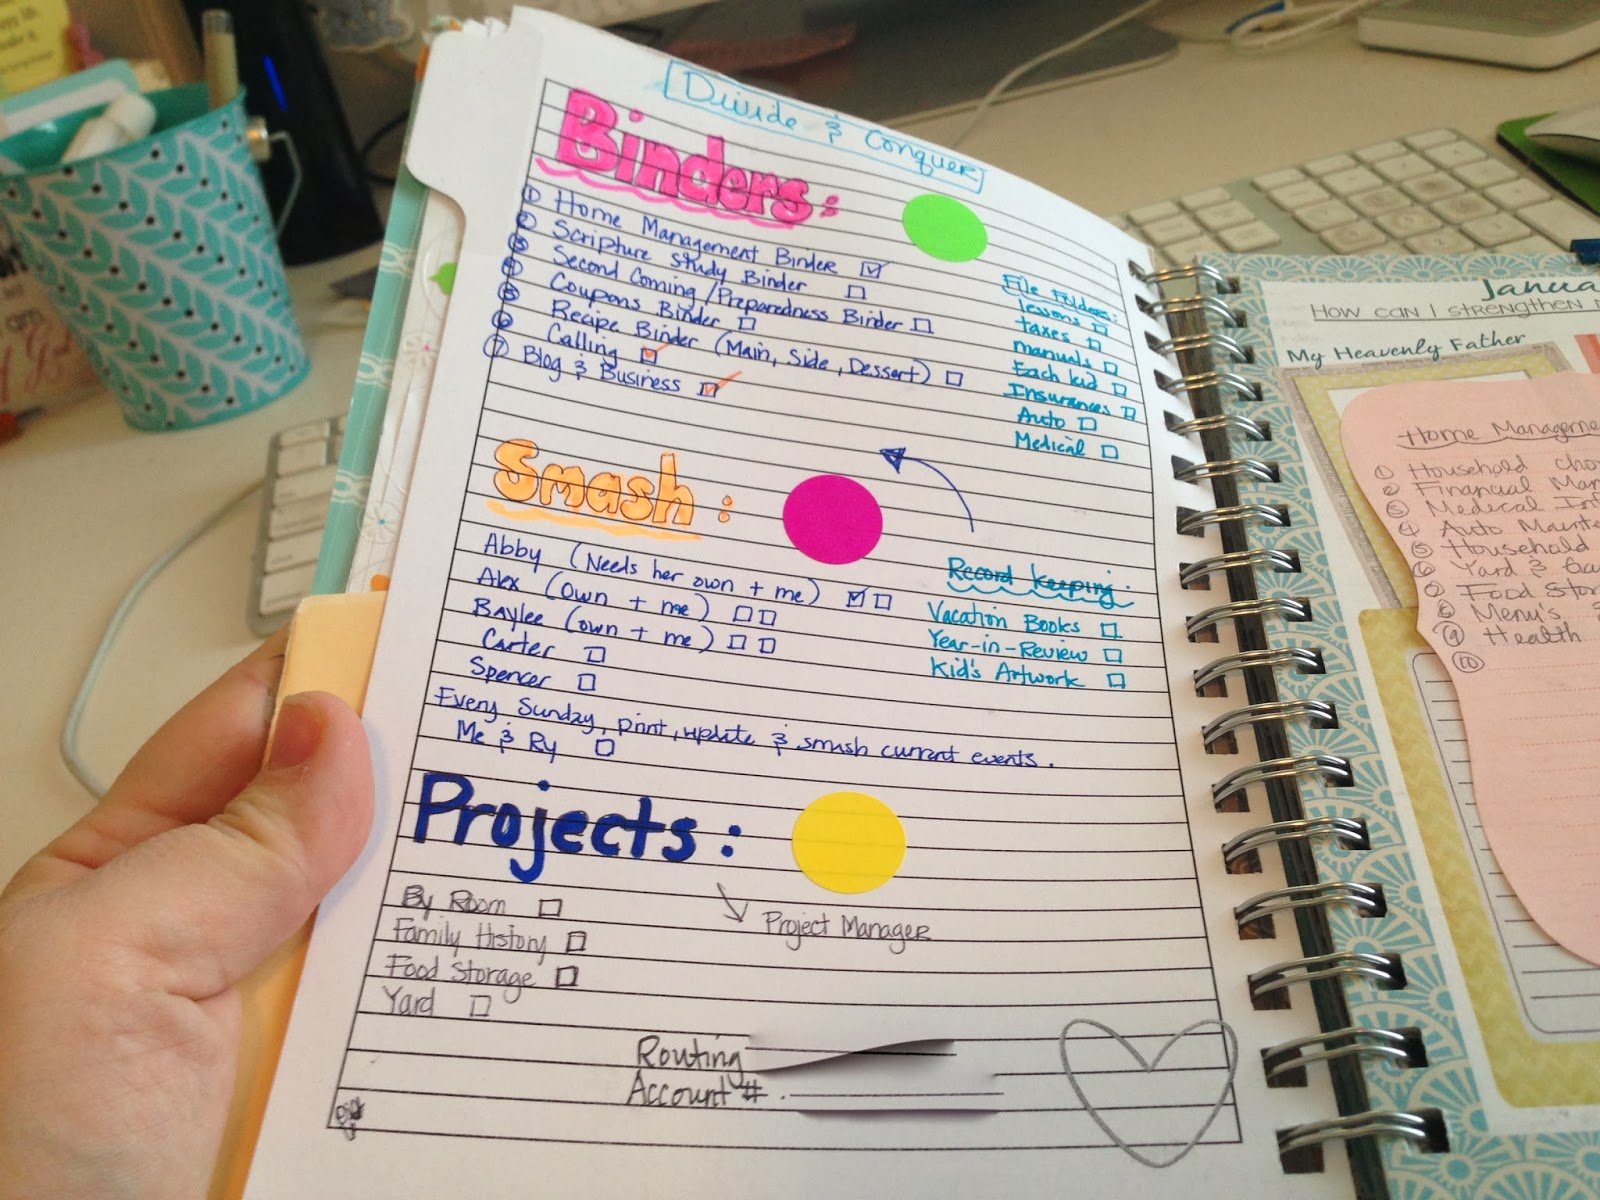 Divide & Conquer
Binders:
① Home Management Binder
② Scripture Study Binder
③ Second Coming/Preparedness Binder
④ Coupons Binder
⑤ Recipe Binder (Main, Side, Dessert)
⑥ Calling
⑦ Blog & Business
File Folders:
lessons
taxes
manuals
Each kid
Insurances
Auto
Medical
Smash:
Abby (Needs her own + me)
Alex (own + me)
Baylee (own + me)
Carter
Spencer
Every Sunday, print, update & smash current events.
Me & Ry
Record keeping:
Vacation Books
Year-in-Review
Kid's Artwork
Projects:
Project Manager
By Room
Family History
Food Storage
Yard
Routing
Account #
Janua
How can I strengthen
My Heavenly Father
Home Manageme
① Household Cho
② Financial Man
③ Medical Inf
④ Auto Mainte
⑤ Household
⑥ Yard &
⑦ Food Stor
⑧ Menu's
⑨ Health
⑩